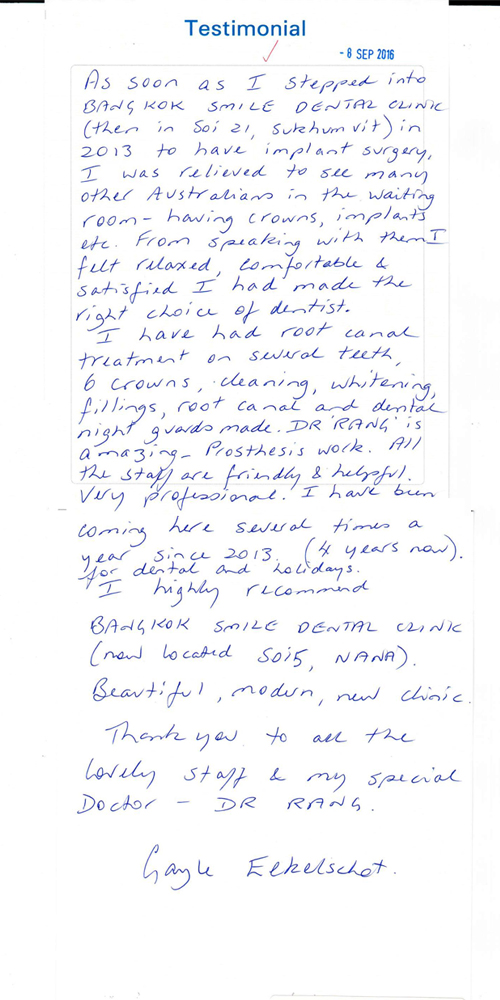 Testimonial
- 8 SEP 2016
As soon as I stepped into
BANGKOK SMILE DENTAL CLINIC
(then in Soi 21, Sukhumvit) in
2013 to have implant surgery,
I was relieved to see many
other Australians in the waiting
room - having crowns, implants
etc. From speaking with them I
felt relaxed, comfortable &
satisfied I had made the
right choice of dentist.
I have had root canal
treatment on several teeth,
6 crowns, cleaning, whitening,
fillings, root canal and dental
night guards made. DR 'RANG' is
amazing - Prosthesis work. All
the staff are friendly & helpful.
Very professional. I have been
coming here several times a
year since 2013. (4 years now).
for dental and holidays.
I highly recommend
BANGKOK SMILE DENTAL CLINIC
(now located Soi5, NANA).
Beautiful, modern, new clinic.
Thank you to all the
lovely staff & my special
Doctor - DR RANG.
Gayle Eekelschot.